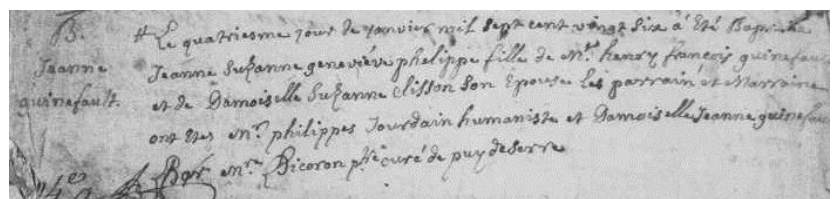 B.
Jeanne
guinefault.
Le quatriesme jour de janvier mil sept cent vingt six a été Baptisée
Jeanne Suzanne geneviève philippe fille de Mre henry françois guinefau
et de Damoiselle Suzanne Clisson son Epouse Les parrain et Marraine
ont étés Mr. philippes Jourdain humaniste et Damoiselle Jeanne guinefau
Par Mre Bicoron ptre curé de puy de Serre